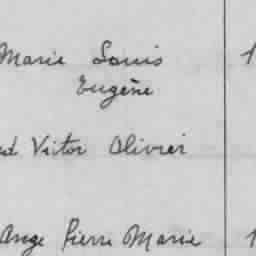 Marie Louis
Eugène
Victor Olivier
Ange Pierre Marie